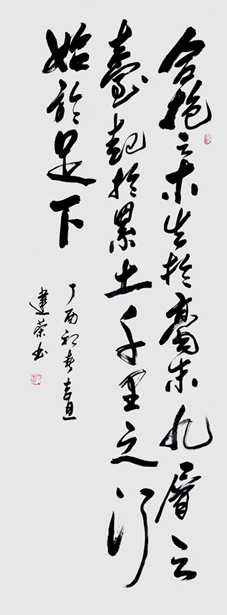 合抱之木生於毫末九層之
臺起於累土千里之行
始於足下
丁酉初春吉旦
建荣书